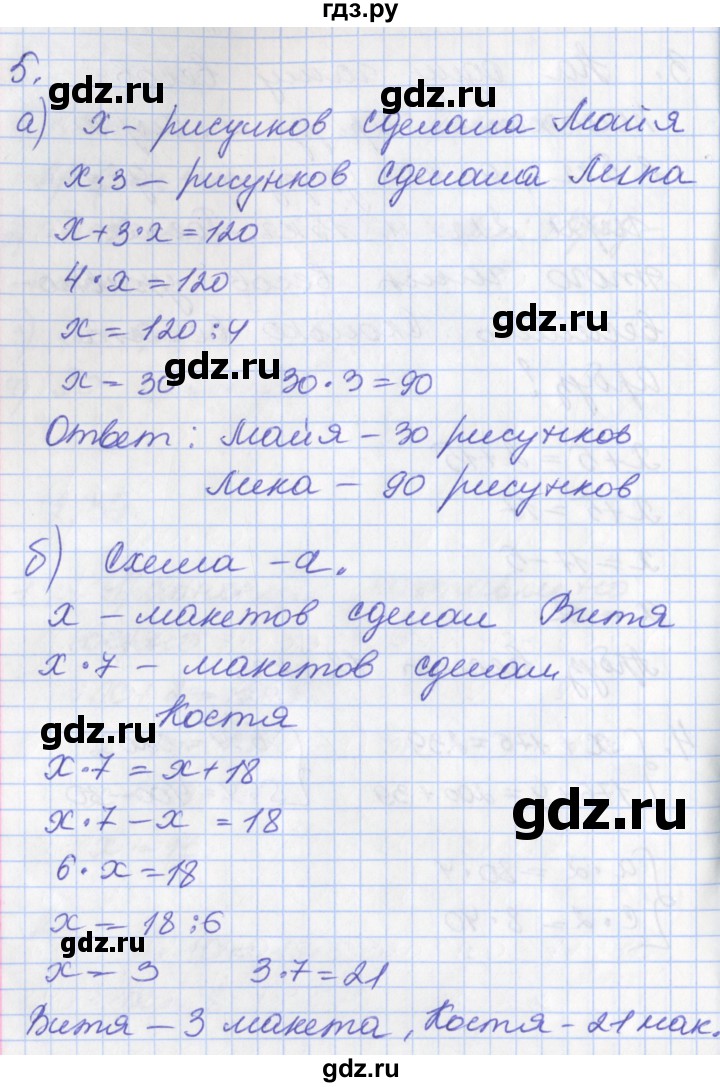 гдз.ру
5.
gdz.ru
gdz.ru
а) x - рисунков сделала Майя
x·3 – рисунков сделала Лика
x+3·x=120
4·x=120
gdz.ru
x=120:4
gdz.ru
x=30 30·3=90
Ответ: Майя – 30 рисунков
Лика – 90 рисунков
б) Схема -а.
x – макетов сделал Витя
x·7 – макетов сделал
Костя
gdz.ru
x·7=x+18
gdz.ru
x·7-x=18
6·x=18
x=18:6
gdz.ru
x=3 3·7=21
Витя – 3 макета, Костя - 21 мак.
gdz.ru
gdz.ru